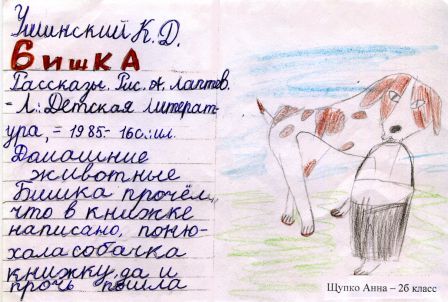 Ушинский К. Д.
Бишка
Рассказы. Рис. А. Лаптев.
- Л.: Детская литерат-
ура, = 1985- 16с.: ил.
Домашние
животные
Бишка прочёл,
что в книжке
написано, поню-
хала собачка
книжку, да и
прочь пошла
Щупко Анна – 2б класс